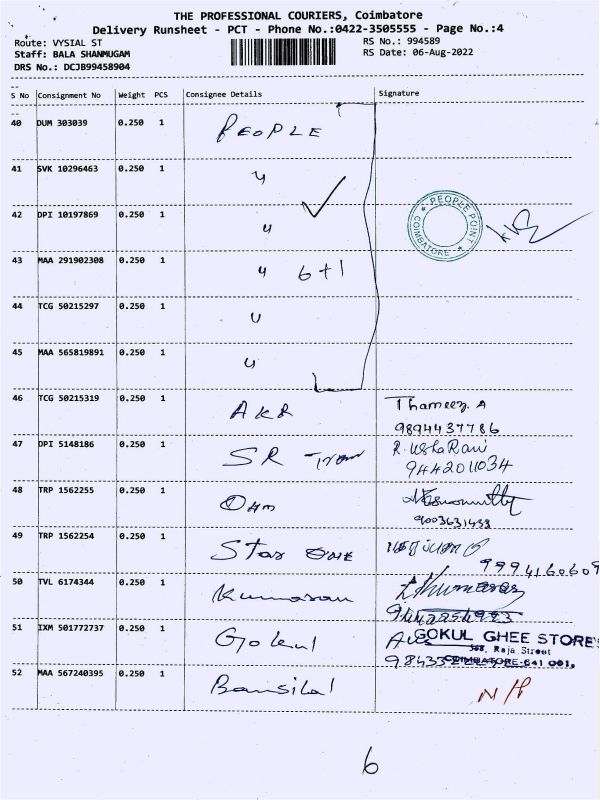 THE PROFESSIONAL COURIERS, Coimbatore
Delivery Runsheet - PCT - Phone No.:0422-3505555 - Page No.:4
Route: VYSIAL ST
RS No.: 994589
Staff: BALA SHANMUGAM
RS Date: 06-Aug-2022
DRS No.: DCJB99458904
S No Consignment No Weight PCS Consignee Details Signature
40 DUM 303039 0.250 1 PEOPLE
41 SVK 10296463 0.250 1 "
42 DPI 10197869 0.250 1 "
PEOPLE POINT
COIMBATORE
43 MAA 291902308 0.250 1 " 6+1
44 TCG 50215297 0.250 1 "
45 MAA 565819891 0.250 1 "
46 TCG 50215319 0.250 1 AKR Thameez. A
9894437786
47 DPI 5148186 0.250 1 SR R. Usha Rani
9442011034
48 TRP 1562255 0.250 1 OHM
9003631433
49 TRP 1562254 0.250 1 Star ONE
9994160609
50 TVL 6174344 0.250 1 Kumaran
51 IXM 501772737 0.250 1 Gokul GOKUL GHEE STORES
Raja Street
98433 COIMBATORE-641 001.
52 MAA 567240395 0.250 1 Bansilal N/A
6